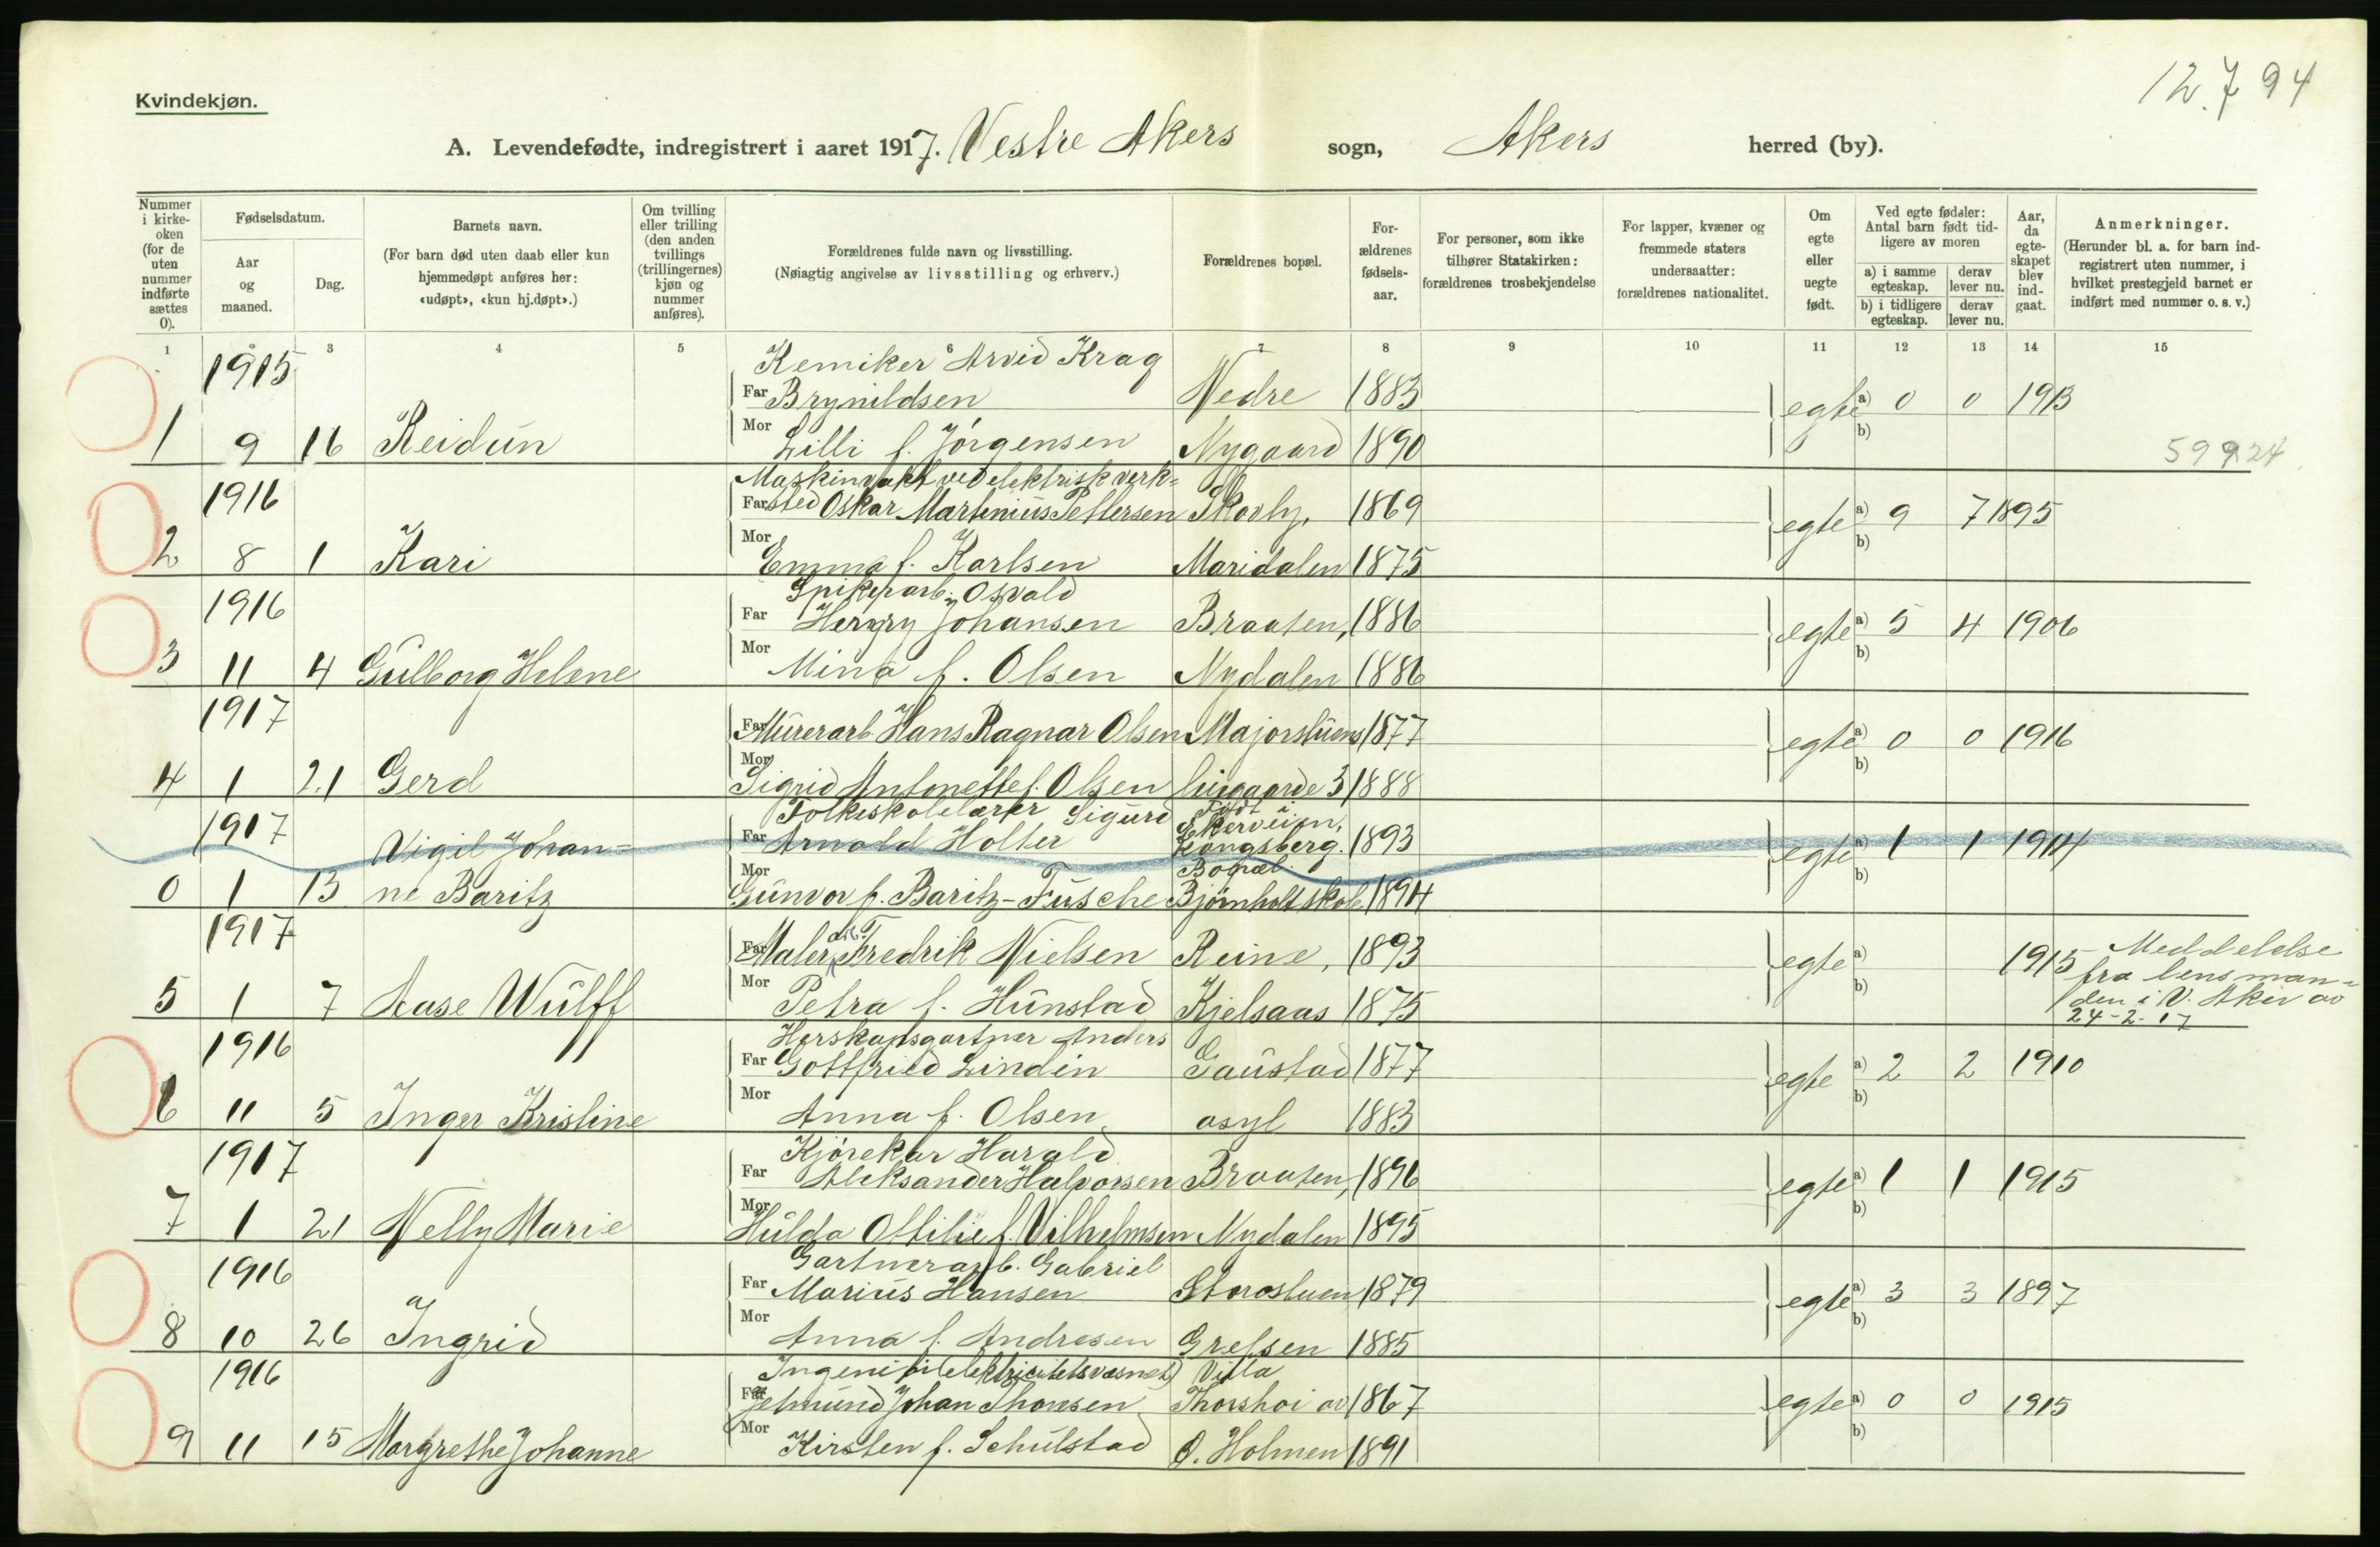 12.7 94
Kvindekjøn.
A. Levendefødte, indregistrert i aaret 1917. Vestre Akers sogn, Akers herred (by).
Nummer i kirkeoken (for de uten nummer indførte sættes 0).
Fødselsdatum.
Aar og maaned.
Dag.
Barnets navn.
(For barn død uten daab eller kun hjemmedøpt anføres her: «udøpt», «kun hj.døpt».)
Om tvilling eller trilling (den anden tvillings (trillingernes) kjøn og nummer anføres).
Forældrenes fulde navn og livsstilling.
(Nøiagtig angivelse av livsstilling og erhverv.)
Forældrenes bopæl.
Forældrenes fødselsaar.
For personer, som ikke tilhører Statskirken: forældrenes trosbekjendelse
For lapper, kvæner og fremmede staters undersaatter: forældrenes nationalitet.
Om egte eller uegte født.
Ved egte fødsler: Antal barn født tidligere av moren
a) i samme egteskap. derav lever nu.
b) i tidligere egteskap. derav lever nu.
Aar, da egteskapet blev indgaat.
Anmerkninger.
(Herunder bl. a. for barn indregistrert uten nummer, i hvilket prestegjeld barnet er indført med nummer o. s. v.)
1 3 4 5 6 7 8 9 10 11 12 13 14 15
1915 Kemiker Arvid Krag
Far Brynildsen Nedre 1883 egte a) 0 0 1913
1 9 16 Reidun Mor Lilli f. Jörgensen Nygaard 1890 b) 59924
1916 Maskinvakt ved elektrisk verk=
Far sted Oskar Martinius Pettersen Skovly, 1869 egte a) 9 7 1895
2 8 1 Kari Mor Emma f. Karlsen Maridalen 1875 b)
1916 Spikerarb. Osvald
Far Henry Johansen Braaten, 1886 egte a) 5 4 1906
3 11 4 Gulborg Helene Mor Mina f. Olsen Nydalen 1886 b)
1917 Far Murerarb. Hans Ragnar Olsen Majorstuens 1877 egte a) 0 0 1916
4 1 21 Gerd Mor Sigrid Antonette f. Olsen 3 1888 b)
1917 Folkeskolelærer Sigurd Født i Ekerveien,
Vigil Johan= Far Arnold Holter Kongsberg. 1893 egte a) 1 1 1914
Bopæl
0 1 13 ne Baritz Mor Gunvor f. Baritz-Fusche Bjørnholt skole 1894 b)
1917 Far Maler arb. Fredrik Nielsen Reine, 1893 egte a) 1915 Meddelelse
fra lensman=
5 1 7 Aase Wulff Mor Petra f. Hunstad Kjelsaas 1875 b) den i V. Aker av
24-2-17
1916 Herskapsgartner Anders
Far Gottfried Lindin Gaustad 1877 egte a) 2 2 1910
6 11 5 Inger Kristine Mor Anna f. Olsen asyl 1883 b)
1917 Kjörekar Harald
Far Aleksander Halvorsen Braaten, 1896 egte a) 1 1 1915
7 1 21 Nelly Marie Mor Hulda Ottilie f. Vilhelmsen Nydalen 1895 b)
1916 Gartnerarb. Gabriel
Far Marius Hansen Storostuen 1879 egte a) 3 3 1897
8 10 26 Ingrid Mor Anna f. Andresen Grefsen 1885 b)
1916 elektricitetsvæsnet) Villa
Far Johan Thoresen Thorshoi av 1867 egte a) 0 0 1915
9 11 15 Margrethe Johanne Mor Kirsten f. Schulstad O. Holmen 1891 b)